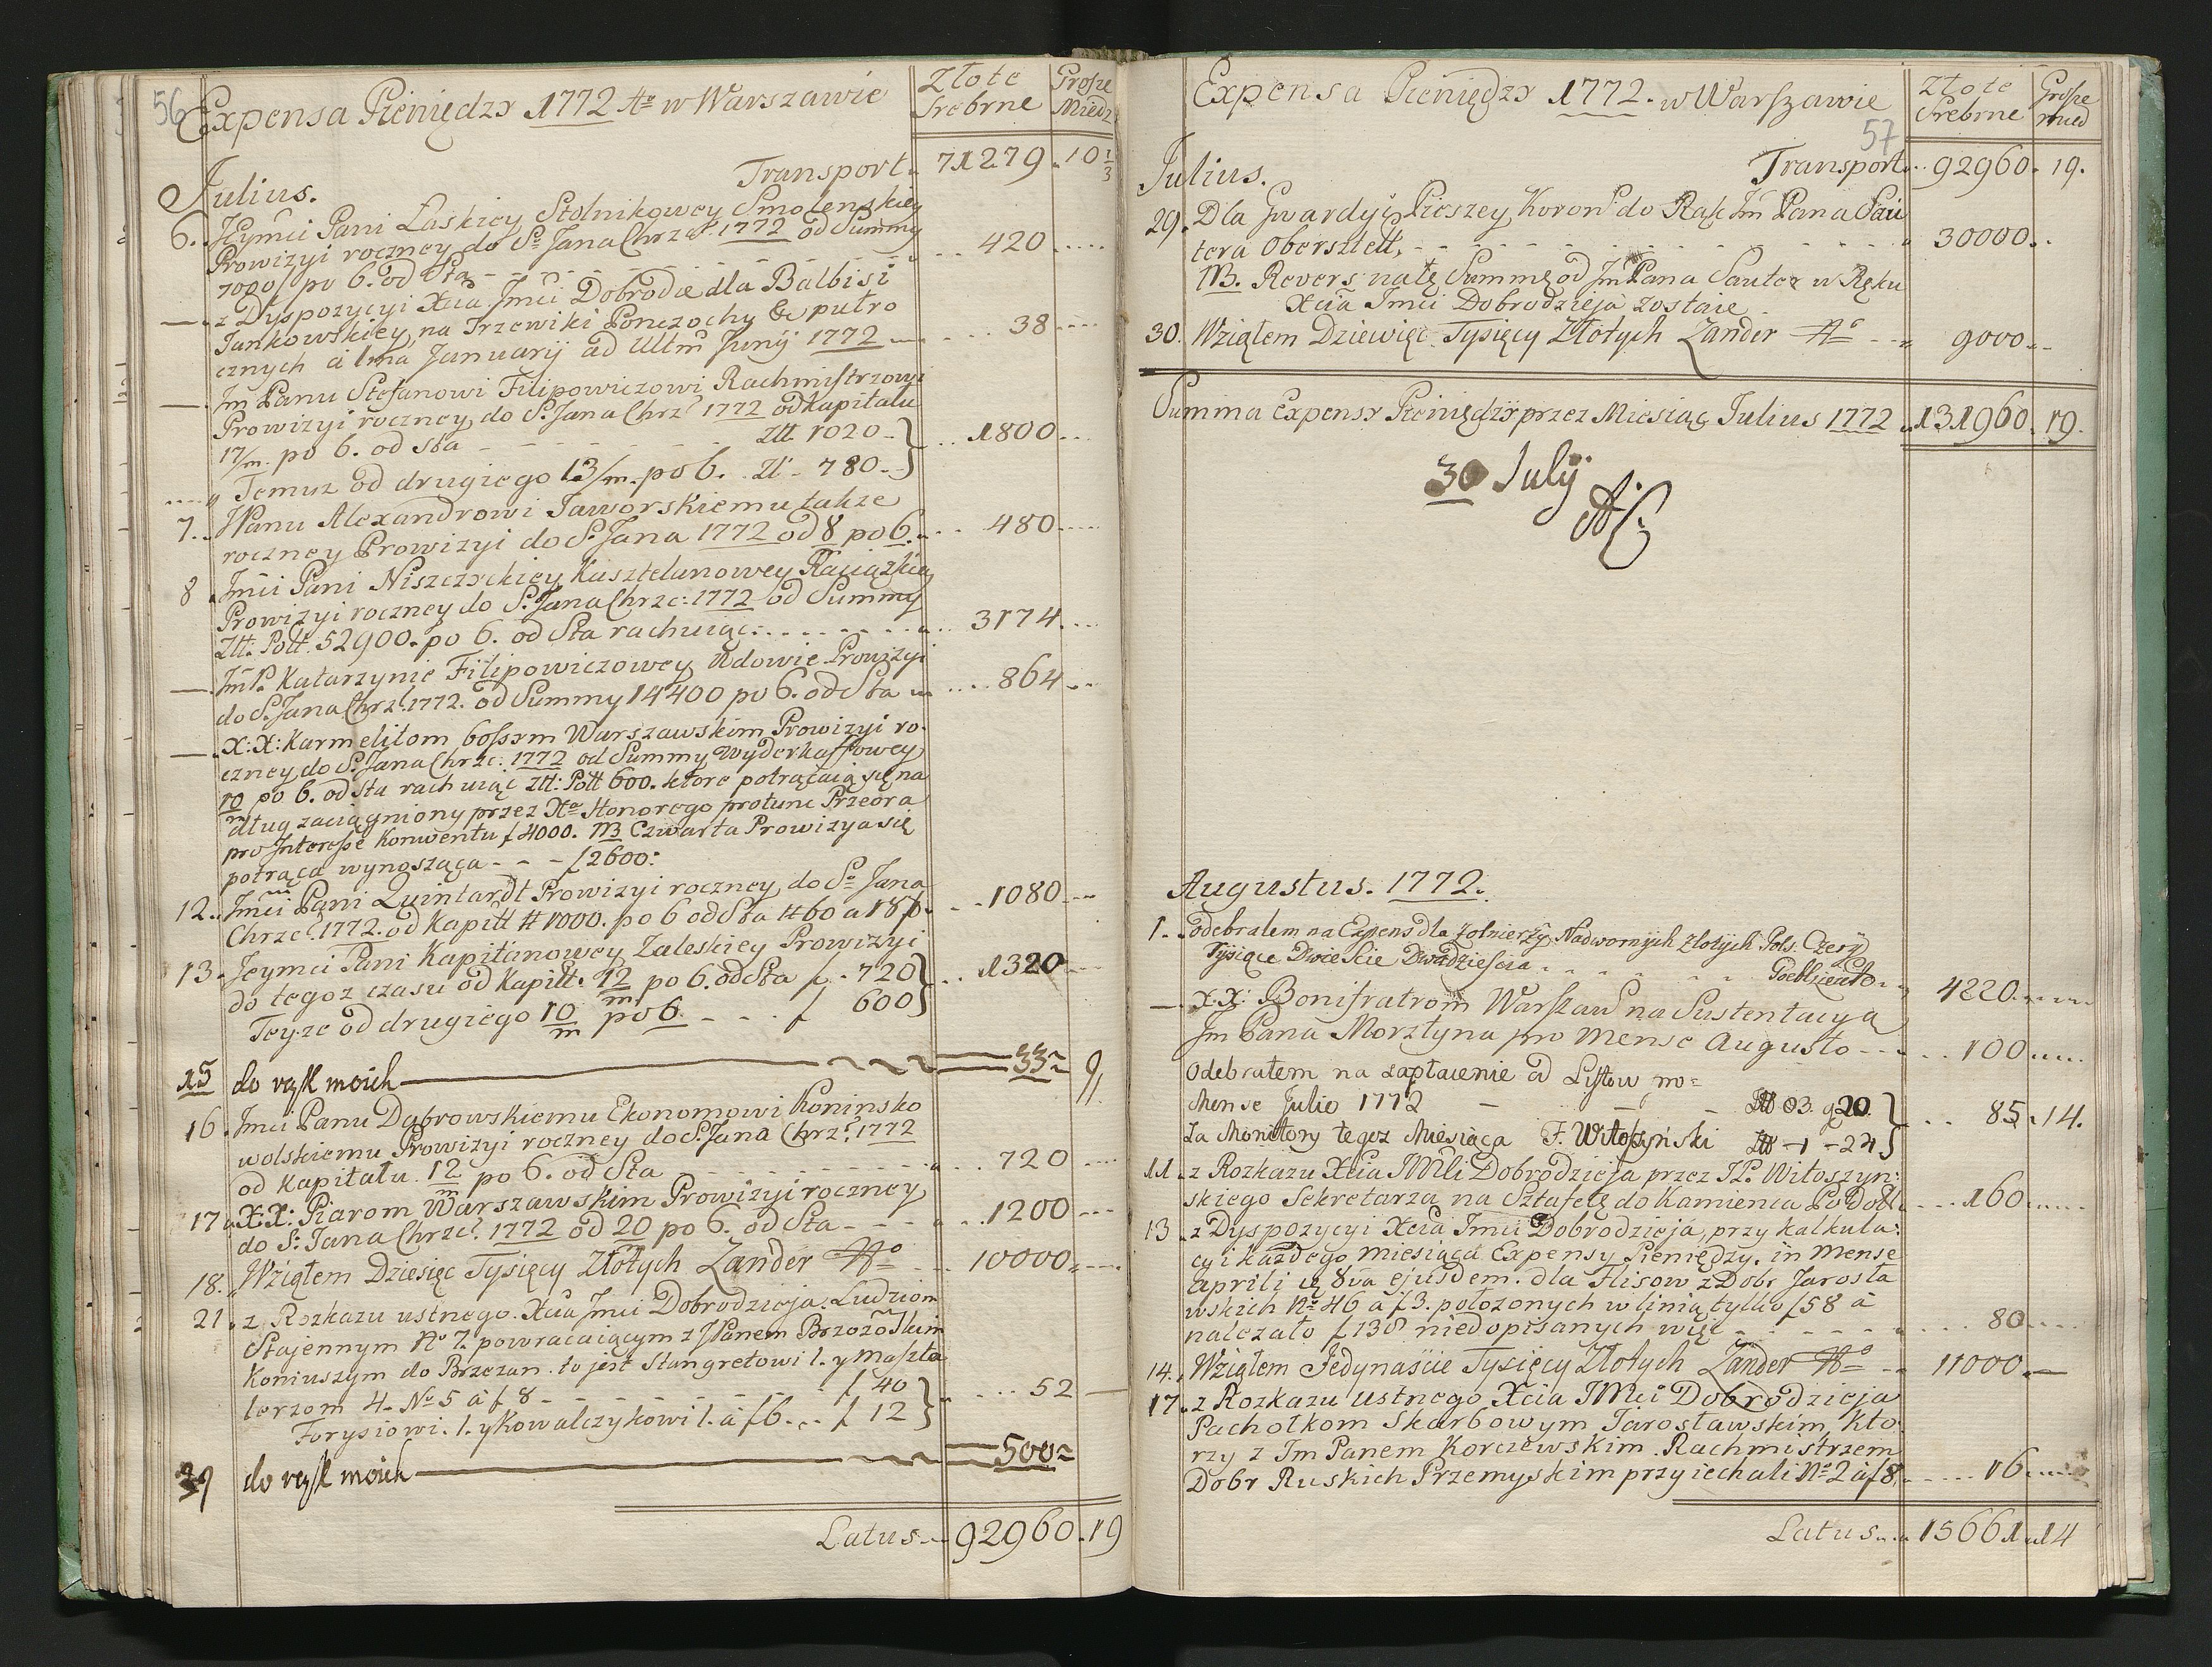 56
Expensa Pieniędzy 1772 Ao w Warszawie
Złote Srebrne
Grosze Miedz
Transport 71279. 10 1/3
Julius.
6. Jeymci Pani Łaskiey Stolnikowey Smolenskiey
Prowizyi roczney do So Jana Chrzcl. 1772 od Summy
7000 po 6. od Sta - - - 420
— z Dyspozycyi Xcia Jmci Dobrodieia dla Balbisi
Jankowskiey, na Trzewiki Ponczochy &c putro
cznych a 1ma Januarij ad Ultm Junij 1772 - 38
— Jm Panu Stefanowi Filipowiczowi Rachmistrzowi
Prowizyi roczney do S. Jana Chrzl 1772 od kapitału
17/m. po 6. od sta - - - Złł. 1020 } 1800
Temuz od drugiego 13/m. po 6. Zł - 780
7. JPanu Alexandrowi Jaworskiemu takze
roczney Prowizyi do S. Jana 1772 od 8 po 6. 480
8 Jmci Pani Niszczyckiey Kasztelanowey Raciąskiey
Prowizyi roczney do S. Jana Chrzc: 1772 od Summy
Złł: Połł. 52900. po 6. od Sta rachuiąc: 3174
— JmP. Katarzynie Filipowiczowey Wdowie Prowizyi
do S. Jana Chrzl. 1772. od Summy 14400 po 6. od Sta 864
— X: X: Karmelitom bossym Warszawskim Prowizyi ro-
czney do S. Jana Chrzc: 1772 od Summy Wyderkaffowey
10/m po 6. od Sta rachuiąc Złł: Połł 600. ktore potrącaią się na
dług zaciągniony przez Xo Honorego protunc Przeora
pro Interesse Konwentu f 4000. NB Czwarta Prowizya się
potrąca wynosząca - - - f 2600:
12. Jmci Pani Quintardt Prowizyi roczney do So Jana
Chrzcl. 1772. od Kapitł # 1000. po 6 od Sta # 60 a 18 f. 1080
13. Jeymci Pani Kapitanowey Zaleskiey Prowizyi
do tegoz czasu od Kapitł. 12/m po 6. od Sta f. 720 } 1320
Teyze od drugiego 10/m po 6. - - - f 600
15 do rąk moich 33
16. Jmci Panu Dąbrowskiemu Ekonomowi Koninsko
wolskiemu Prowizyi roczney do S. Jana Chrzl. 1772
od Kapitału 12/m po 6. od Sta 720
17. X: X: Piarom Warszawskim Prowizyi roczney
do S: Jana Chrzcl. 1772 od 20 po 6. od Sta 1200
18. Wziąłem Dziesięc Tysięcy Złotych Zander 10000
21. z Rozkazu ustnego Xcia Jmci Dobrodzieja. Ludziom
Stajennym No 7. powracaiącym z JPanem Brzozoskim
Koniuszym do Brzezan. to jest Stangretowi 1. y Maszta
lerzom 4. No 5 a f 8 - - - f 40 } 52
Forysiowi. 1. y Kowalczykowi 1. a f 6. f 12
do rąk moich 500
Latus 92960. 19
Expensa Pieniędzy 1772. w Warszawie
Złote Srebrne
Grosze mied
57
Transport 92960. 19.
Julius.
29. Dla Gwardyi Pieszey Koronl do Rąk Jm Pana Sau
tera Obersztelt, 30000
NB. Rewers na tę Summę od Jm Pana Sauter w Ręku
Xcia Jmci Dobrodzieja zostaie
30. Wziąłem Dziewięc Tysięcy Złotych Zander 9000
Summa Expensy Pieniędzy przez Miesiąc Julius 1772 131960. 19.
30 July
Augustus. 1772.
1. Odebrałem na Expens dla Zołnierzy Nadwornych Złotych Pols. Cztery
Tysiące Dwiescie Dwadziescia
4220
— X: X: Bonifratrom Warszaw na Sustentacyą
Jm Pana Morztyna pro Mense Augusto 100
Odebrałem na zapłacenie od Listow pro
Mense Julio 1772 - - - 83. g 20. } 85. 14.
Za Monitory tegoz Miesiąca F. Witoszyński - 1 - 24
11. z Rozkazu Xcia JMci Dobrodzieja przez JP. Witoszyn:
skiego Sekretarza na Sztafetę do Kamienca Podol 160
13. z Dyspozycyi Xcia Jmci Dobrodzieja, przy kalkula:
cyi kazdego miesiąca Expensy Pieniędzy. in Mense
Aprili 8va ejusdem. dla Flisow z Dobr Jarosła
wskich No 46 a f 3. położonych w linią tylko f 58 a
nalezało f 138 niedopisanych więc 80
14. Wziąłem Jedynascie Tysięcy Złotych Zander 11000
17. z Rozkazu ustnego Xcia JMci Dobrodzieja
Pachołkom Skarbowym Jarosławskim, kto
rzy z Jm Panem Korczewskim Rachmistrzem
Dobr Ruskich Przemyskim przyiechali No 2 a f 8. 16
Latus 15661. 14